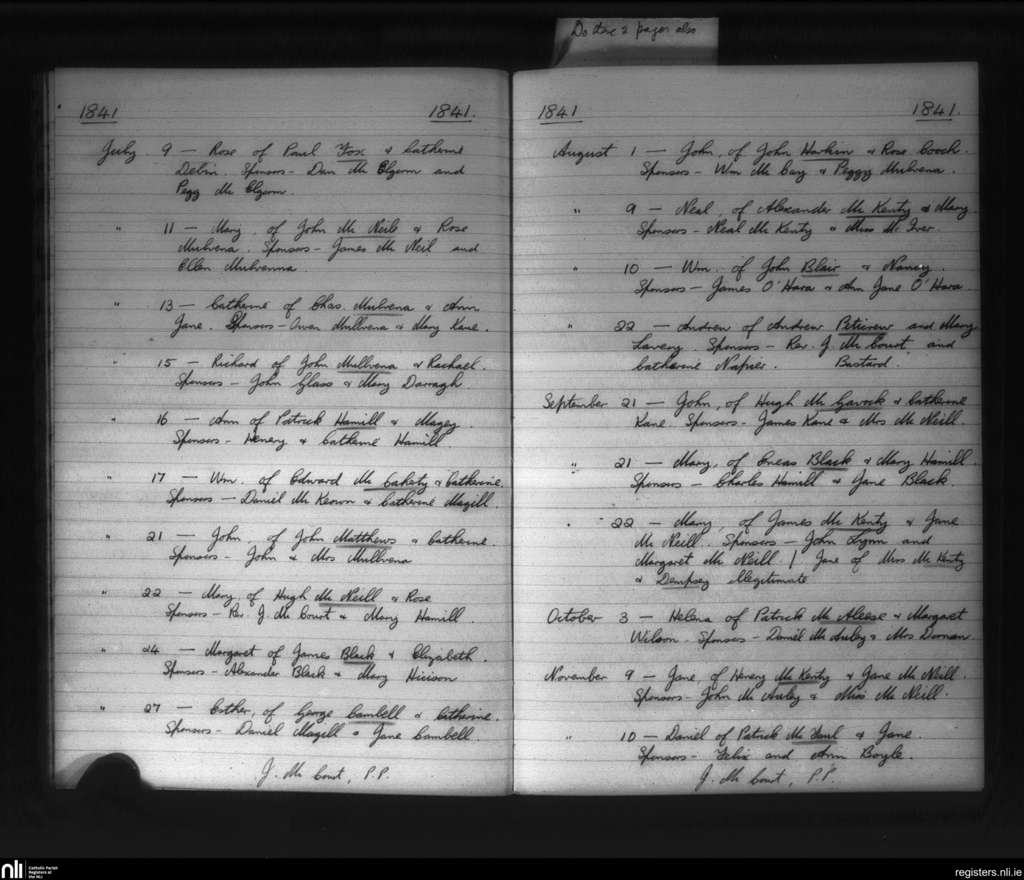 Do these 2 pages also
1841 1841.
July 9 — Rose of Paul Fox & Catherine
Devlin. Sponsors - Dan Mc Elgorm and
Pegg Mc Elgorm.
" 11 — Mary, of John Mc Neil & Rose
Mulvena. Sponsors - James Mc Neil and
Ellen Mulvenna.
" 13 — Catherine of Chas. Mulvena & Ann
Jane. Sponsors - Owen Mullvena & Mary Kane.
" 15 — Richard of John Mullvena & Rachael.
Sponsors - John Glass & Mary Darragh.
" 16 — Ann of Patrick Hamill & Magey.
Sponsors - Henery & Catherine Hamill.
" 17 — Wm. of Edward Mc Cakety & Catherine.
Sponsors — Daniel Mc Keown & Catherine Magill.
" 21 — John, of John Matthews & Catherine.
Sponsors - John & Mrs Mullvena
" 22 — Mary, of Hugh Mc Neill & Rose
Sponsors - Rev. J. Mc Court & Mary Hamill.
" 24 — Margaret of James Black & Elizabeth.
Sponsors - Alexander Black & Mary
" 27 — Esther, of George Cambell & Catherine.
Sponsors - Daniel Magill & Jane Cambell.
J. Mc Court, P.P.
1841 1841.
August 1 — John, of John Harkin & Rose Cooch.
Sponsors - Wm Mc Cay & Peggy Mulvena.
" 9 — Neal, of Alexander Mc Kenty & Mary
Sponsors - Neal Mc Kenty & Miss M. Iver.
" 10 — Wm. of John Blair & Nancy.
Sponsors - James O'Hara & Ann Jane O'Hara.
" 22 — Andrew of Andrew Peticrew and Mary
Lavery. Sponsors - Rev. J. Mc Court, and
Catherine Napier. Bastard.
September 21 — John, of Hugh Mc Gavock & Catherine
Kane. Sponsors - James Kane & Mrs Mc Neill.
" 21 — Mary, of Eneas Black & Mary Hamill.
Sponsors - Charles Hamill & Jane Black.
" 22 — Mary, of James Mc Kenty & Jane
Mc Neill. Sponsors - John Lynn and
Margaret Mc Neill. / Jane of Miss Mc Kenty
& Dempsey illegitimate
October 3 — Helena of Patrick Mc Aleese & Margaret
Wilson. Sponsors - Daniel Mc Auley & Mrs Dornan.
November 9 — Jane, of Henery Mc Kenty & Jane Mc Neill.
Sponsors - John Mc Auley & Miss Mc Neill.
" 10 — Daniel of Patrick Mc Faul & Jane.
Sponsors - Felix and Ann Boyle.
J. Mc Court, P.P.
nli Catholic Parish
Registers at
the NLI
registers.nli.ie